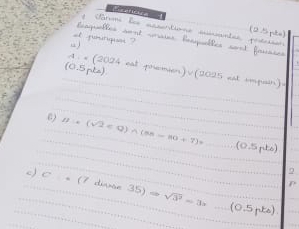 Exercice 1
(2.5pts)
1. Parmi les assertions suivantes, préciser
lesquelles sont vraies, lesquelles sont fausses
et pourquoi ?
a)
A : « (2024 est premier) ∨ (2025 est impair) »
(0.5pts)
b) B : « (√2 ∈ Q) ∧ (88 = 80 + 7) »
(0.5pts)
c) C : « (7 divise 35) ⇒ √3² = 3 »
(0.5pts)
2.